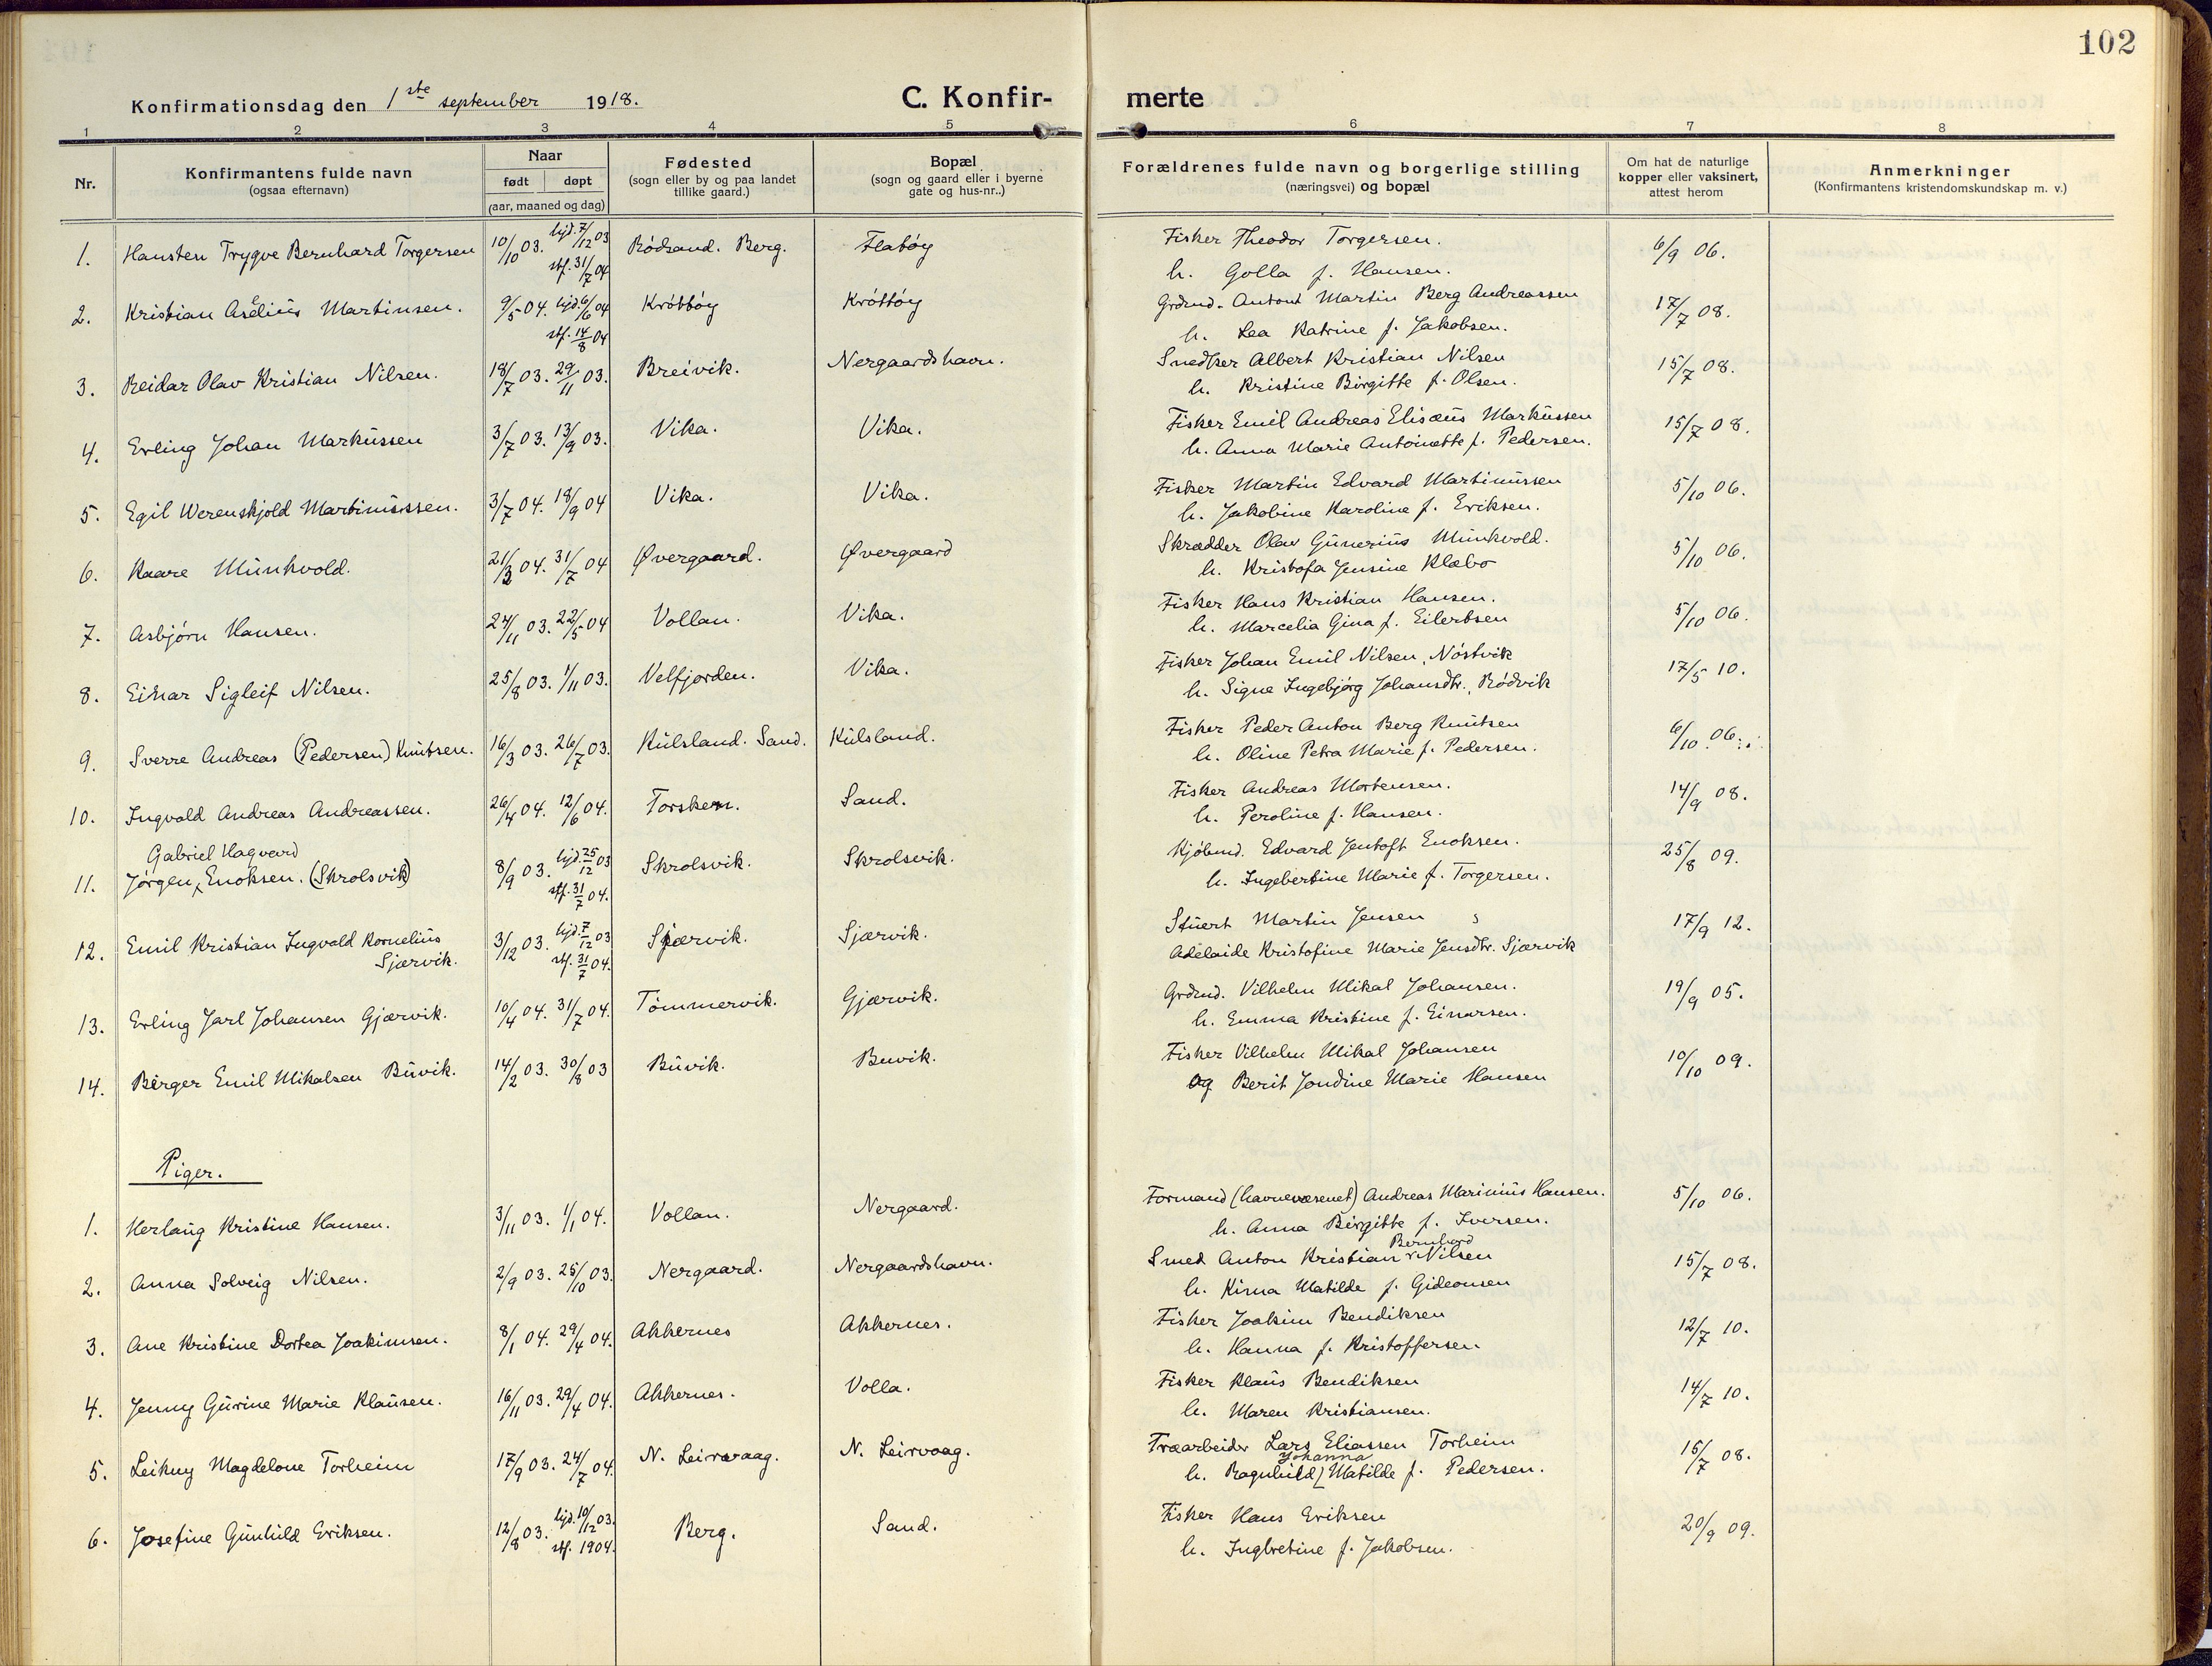 102
Konfirmationsdag den 1ste september 1918.
C. Konfirmerte
1 2 3 4 5 6 7 8
Nr.
Konfirmantens fulde navn
(ogsaa efternavn)
Naar
født døpt
(aar, maaned og dag)
Fødested
(sogn eller by og paa landet
tillike gaard.)
Bopæl
(sogn og gaard eller i byerne
gate og hus-nr..)
Forældrenes fulde navn og borgerlige stilling
(næringsvei) og bopæl
Om hat de naturlige
kopper eller vaksinert,
attest herom
Anmerkninger
(Konfirmantens kristendomskundskap m. v.)
1. Hansten Trygve Bernhard Torgersen 10/10 03. hjd. 7/12 03 stf. 31/7 04 Rödsand. Berg. Flaböy Fisker Theodor Torgersen. 6/9 06.
h. Golla f. Hansen.
2. Kristian Aselius Martinsen. 9/5 04. hjd. 6/6 04 stf. 14/8 04 Kröttöy Kröttöy Grdmd. Antont Martin Berg Andreassen 17/7 08.
h. Lea Katrine f. Jakobsen.
3. Reidar Olav Kristian Nilsen. 18/7 03. 29/11 03. Breivik. Nergaardshavn. Snedker Albert Kristian Nilsen 15/7 08.
h. Kristine Birgitte f. Olsen.
4. Erling Johan Markussen 3/7 03. 13/9 03. Vika. Vika. Fisker Emil Andreas Elisæus Markussen 15/7 08.
h. Anna Marie Antoinette f. Pedersen.
5. Egil Werenskjold Martinussen. 3/7 04. 18/9 04 Vika. Vika. Fisker Martin Edvard Martinussen 5/10 06.
h. Jakobine Karoline f. Eriksen.
6. Kaare Munkvold. 21/3 04. 31/7 04 Øvergaard. Øvergaard Skrædder Olav Gunerius Munkvold. 5/10 06.
h. Kristofa Jensine Klæbo
7. Asbjörn Hansen. 24/11 03. 22/5 04 Vollan. Vika. Fisker Hans Kristian Hansen. 5/10 06.
h. Marcelia Gina f. Eilertsen
8. Einar Sigleif Nilsen. 25/8 03. 1/11 03. Velfjorden. Vika. Fisker Johan Emil Nilsen, Nöstvik 17/5 10.
h. Signe Ingebjörg Johansdtr., Rödvik
9. Sverre Andreas (Pedersen) Knutsen. 16/3 03. 26/7 03. Kulsland. Sand. Kulsland. Fisker Peder Anton Berg Knutsen 6/10 06.
h. Oline Petra Marie f. Pedersen.
10. Ingvald Andreas Andreassen. 26/4 04. 12/6 04. Torsken. Sand. Fisker Andreas Mortensen. 14/9 08.
h. Peroline f. Hansen.
Gabriel Hagvard
11. Jörgen Enoksen. (Skrolsvik) 8/9 03. hjd. 25/12 03 stf. 31/7 04. Skrolsvik. Skrolsvik. Kjöbmd. Edvard Jentoft Enoksen. 25/8 09.
h. Ingebertine Marie f. Torgersen.
12. Emil Kristian Ingvald Kornelius 3/12 03. hjd. 7/12 03 stf. 31/7 04. Sjærvik. Sjærvik. Stuert Martin Jensen 17/9 12.
Sjærvik. Adelaide Kristofine Marie Jensdtr. Sjærvik
13. Erling Jarl Johansen Gjærvik. 10/4 04. 31/7 04. Tömmervik. Gjærvik. Grdmd. Vilhelm Mikal Johansen. 19/9 05.
h. Emma Kristine f. Einarsen.
14. Birger Emil Mikalsen Buvik. 14/2 03. 30/8 03 Buvik. Buvik. Fisker Vilhelm Mikal Johansen 10/10 09.
og Berit Jondine Marie Hansen
Piger.
1. Herlaug Kristine Hansen. 3/11 03. 1/1 04. Vollan. Nergaard. Formand (havnevæsenet) Andreas Marinius Hansen. 5/10 06.
h. Anna Birgitte f. Iversen.
Bernhard
2. Anna Solveig Nilsen. 2/9 03. 25/10 03. Nergaard. Nergaardshavn. Smed Anton Kristian Nilsen 15/7 08.
h. Kirna Matilde f. Gideonsen
3. Ane Kristine Dortea Joakimsen. 8/1 04. 29/4 04. Akkernes Akkernes. Fisker Joakim Bendiksen 12/7 10.
h. Hanna f. Kristoffersen
4. Jenny Gurine Marie Klausen. 16/11 03. 29/4 04. Akkernes. Volla. Fisker Klaus Bendiksen 14/7 10.
h. Maren Kristiansen.
5. Leikny Magdelone Torheim 17/9 03. 24/7 04. N. Leirvaag. N. Leirvaag. Træarbeider Lars Eliassen Torheim 15/7 08.
Johanna
h. Ragnhild Matilde f. Pedersen.
6. Josefine Gunhild Eriksen. 12/8 03. hjd. 10/12 03. stf. 1904. Berg. Sand. Fisker Hans Eriksen 20/9 09.
h. Ingbretine f. Jakobsen.